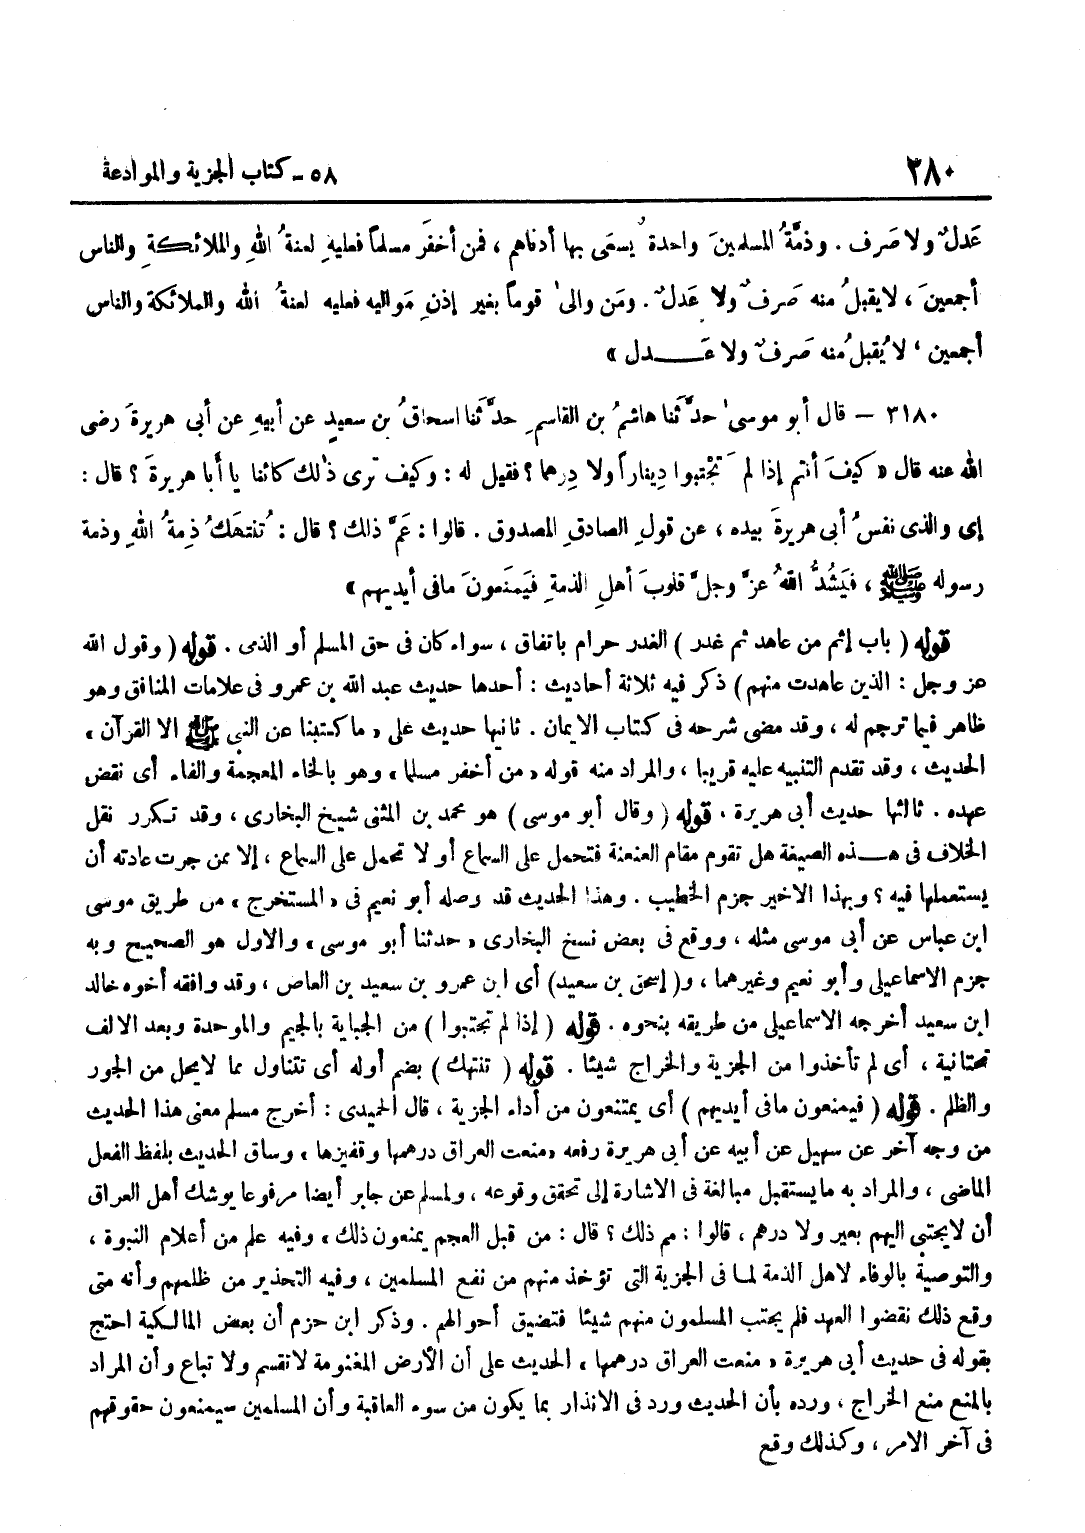 ٣٨٠
٥٨ - كتاب الجزية والموادعة
عَدلٌ ولا صَرف . وذمَّةُ المسلمينَ واحدةٌ يسعَى بها أدناهم ، فمن أخفَر مسلماً فعليهِ لعنةُ اللهِ والملائكةِ والناس
أجمعينَ ، لا يقبلُ منه صَرفٌ ولا عَدلٌ . ومَن والىٰ قوماً بغير إذنِ مَواليه فعليه لعنةُ الله والملائكة والناس
أجمعين ، لا يُقبلُ منه صَرفٌ ولا عَـــدل »
٣١٨٠ — قال أبو موسىٰ حدَّثَنا هاشمُ بن القاسمِ حدَّثَنا اسحاقُ بن سعيدٍ عن أبيهِ عن أبي هريرةَ رضى
الله عنه قال « كيفَ أنتم إذا لم تَجْتبوا دِيناراً ولا دِرهما ؟ فقيل له : وكيف ترى ذٰلك كائنا يا أَبا هريرةَ ؟ قال :
إى والذى نفسُ أبى هريرةَ بيده ، عن قولِ الصادقِ المصدوق . قالوا : عَمَّ ذاك ؟ قال : تُنتهَكُ ذِمةُ اللهِ وذمة
رسوله ﷺ ، فيَشُدُّ اللهُ عزَّ وجلَّ قلوبَ أهلِ الذمةِ فيَمنَعونَ مافى أيديهم »
قوله ( باب إثم من عاهد ثم غدر ) الغدر حرام باتفاق ، سواء كان فى حق المسلم أو الذمى . قوله ( وقول الله
عز وجل : الذين عاهدت منهم ) ذكر فيه ثلاثة أحاديث : أحدها حديث عبد الله بن عمرو فى علامات المنافق وهو
ظاهر فيما ترجم له ، وقد مضى شرحه فى كتاب الايمان . ثانيها حديث على « ماكتبنا عن النبي ﷺ الا القرآن »
الحديث ، وقد تقدم التنبيه عليه قريبا ، والمراد منه قوله « من أخفر مسلما » وهو بالخاء المعجمة والفاء أى نقض
عهده . ثالثها حديث أبى هريرة . قوله ( وقال أبو موسى ) هو محمد بن المثنى شيخ البخارى ، وقد تكرر نقل
الخلاف فى هـــذه الصيغة هل تقوم مقام العنعنة فتحمل على السماع أو لا تحمل على السماع ، إلا ممن جرت عادته أن
يستعملها فيه ؟ وبهذا الاخير جزم الخطيب . وهذا الحديث قد وصله أبو نعيم فى « المستخرج » من طريق موسى
ابن عباس عن أبى موسى مثله ، ووقع فى بعض نسخ البخارى « حدثنا أبو موسى » والاول هو الصحيح وبه
جزم الاسماعيلى وأبو نعيم وغيرهما ، و( إسحق بن سعيد ) أى ابن عمرو بن سعيد بن العاص ، وقد وافقه أخوه خالد
ابن سعيد أخرجه الاسماعيلى من طريقه بنحوه . قوله ( إذا لم تجتبوا ) من الجباية بالجيم والموحدة وبعد الالف
تحتانية ، أى لم تأخذوا من الجزية والخراج شيئا . قوله ( تنتهك ) بضم أوله أى تتناول بما لايحل من الجور
والظلم . قوله ( فيمنعون مافى أيديهم ) أى يمتنعون من أداء الجزية ، قال الحميدى : أخرج مسلم معنى هذا الحديث
من وجه آخر عن سهيل عن أبيه عن أبى هريرة رفعه « منعت العراق درهمها وقفيزها » وساق الحديث بلفظ الفعل
الماضى ، والمراد به مايستقبل مبالغة فى الاشارة إلى تحقق وقوعه ، ولمسلم عن جابر أيضا مرفوعا يوشك أهل العراق
أن لايجتبى اليهم بعير ولا درهم ، قالوا : مم ذلك ؟ قال : من قبل العجم يمنعون ذلك » وفيه علم من أعلام النبوة ،
والتوصية بالوفاء لاهل الذمة لما فى الجزية التى تؤخذ منهم من نفع المسلمين ، وفيه التحذير من ظلمهم وأنه متى
وقع ذلك نقضوا العهد فلم يجتب المسلمون منهم شيئا فتضيق أحوالهم . وذكر ابن حزم أن بعض المالكية احتج
بقوله فى حديث أبى هريرة « منعت العراق درهمها » الحديث على أن الأرض المغنومة لاتقسم ولا تباع وأن المراد
بالمنع منع الخراج ، ورده بأن الحديث ورد فى الانذار بما يكون من سوء العاقبة وأن المسلمين سيمنعون حقوقهم
فى آخر الامر ، وكذلك وقع